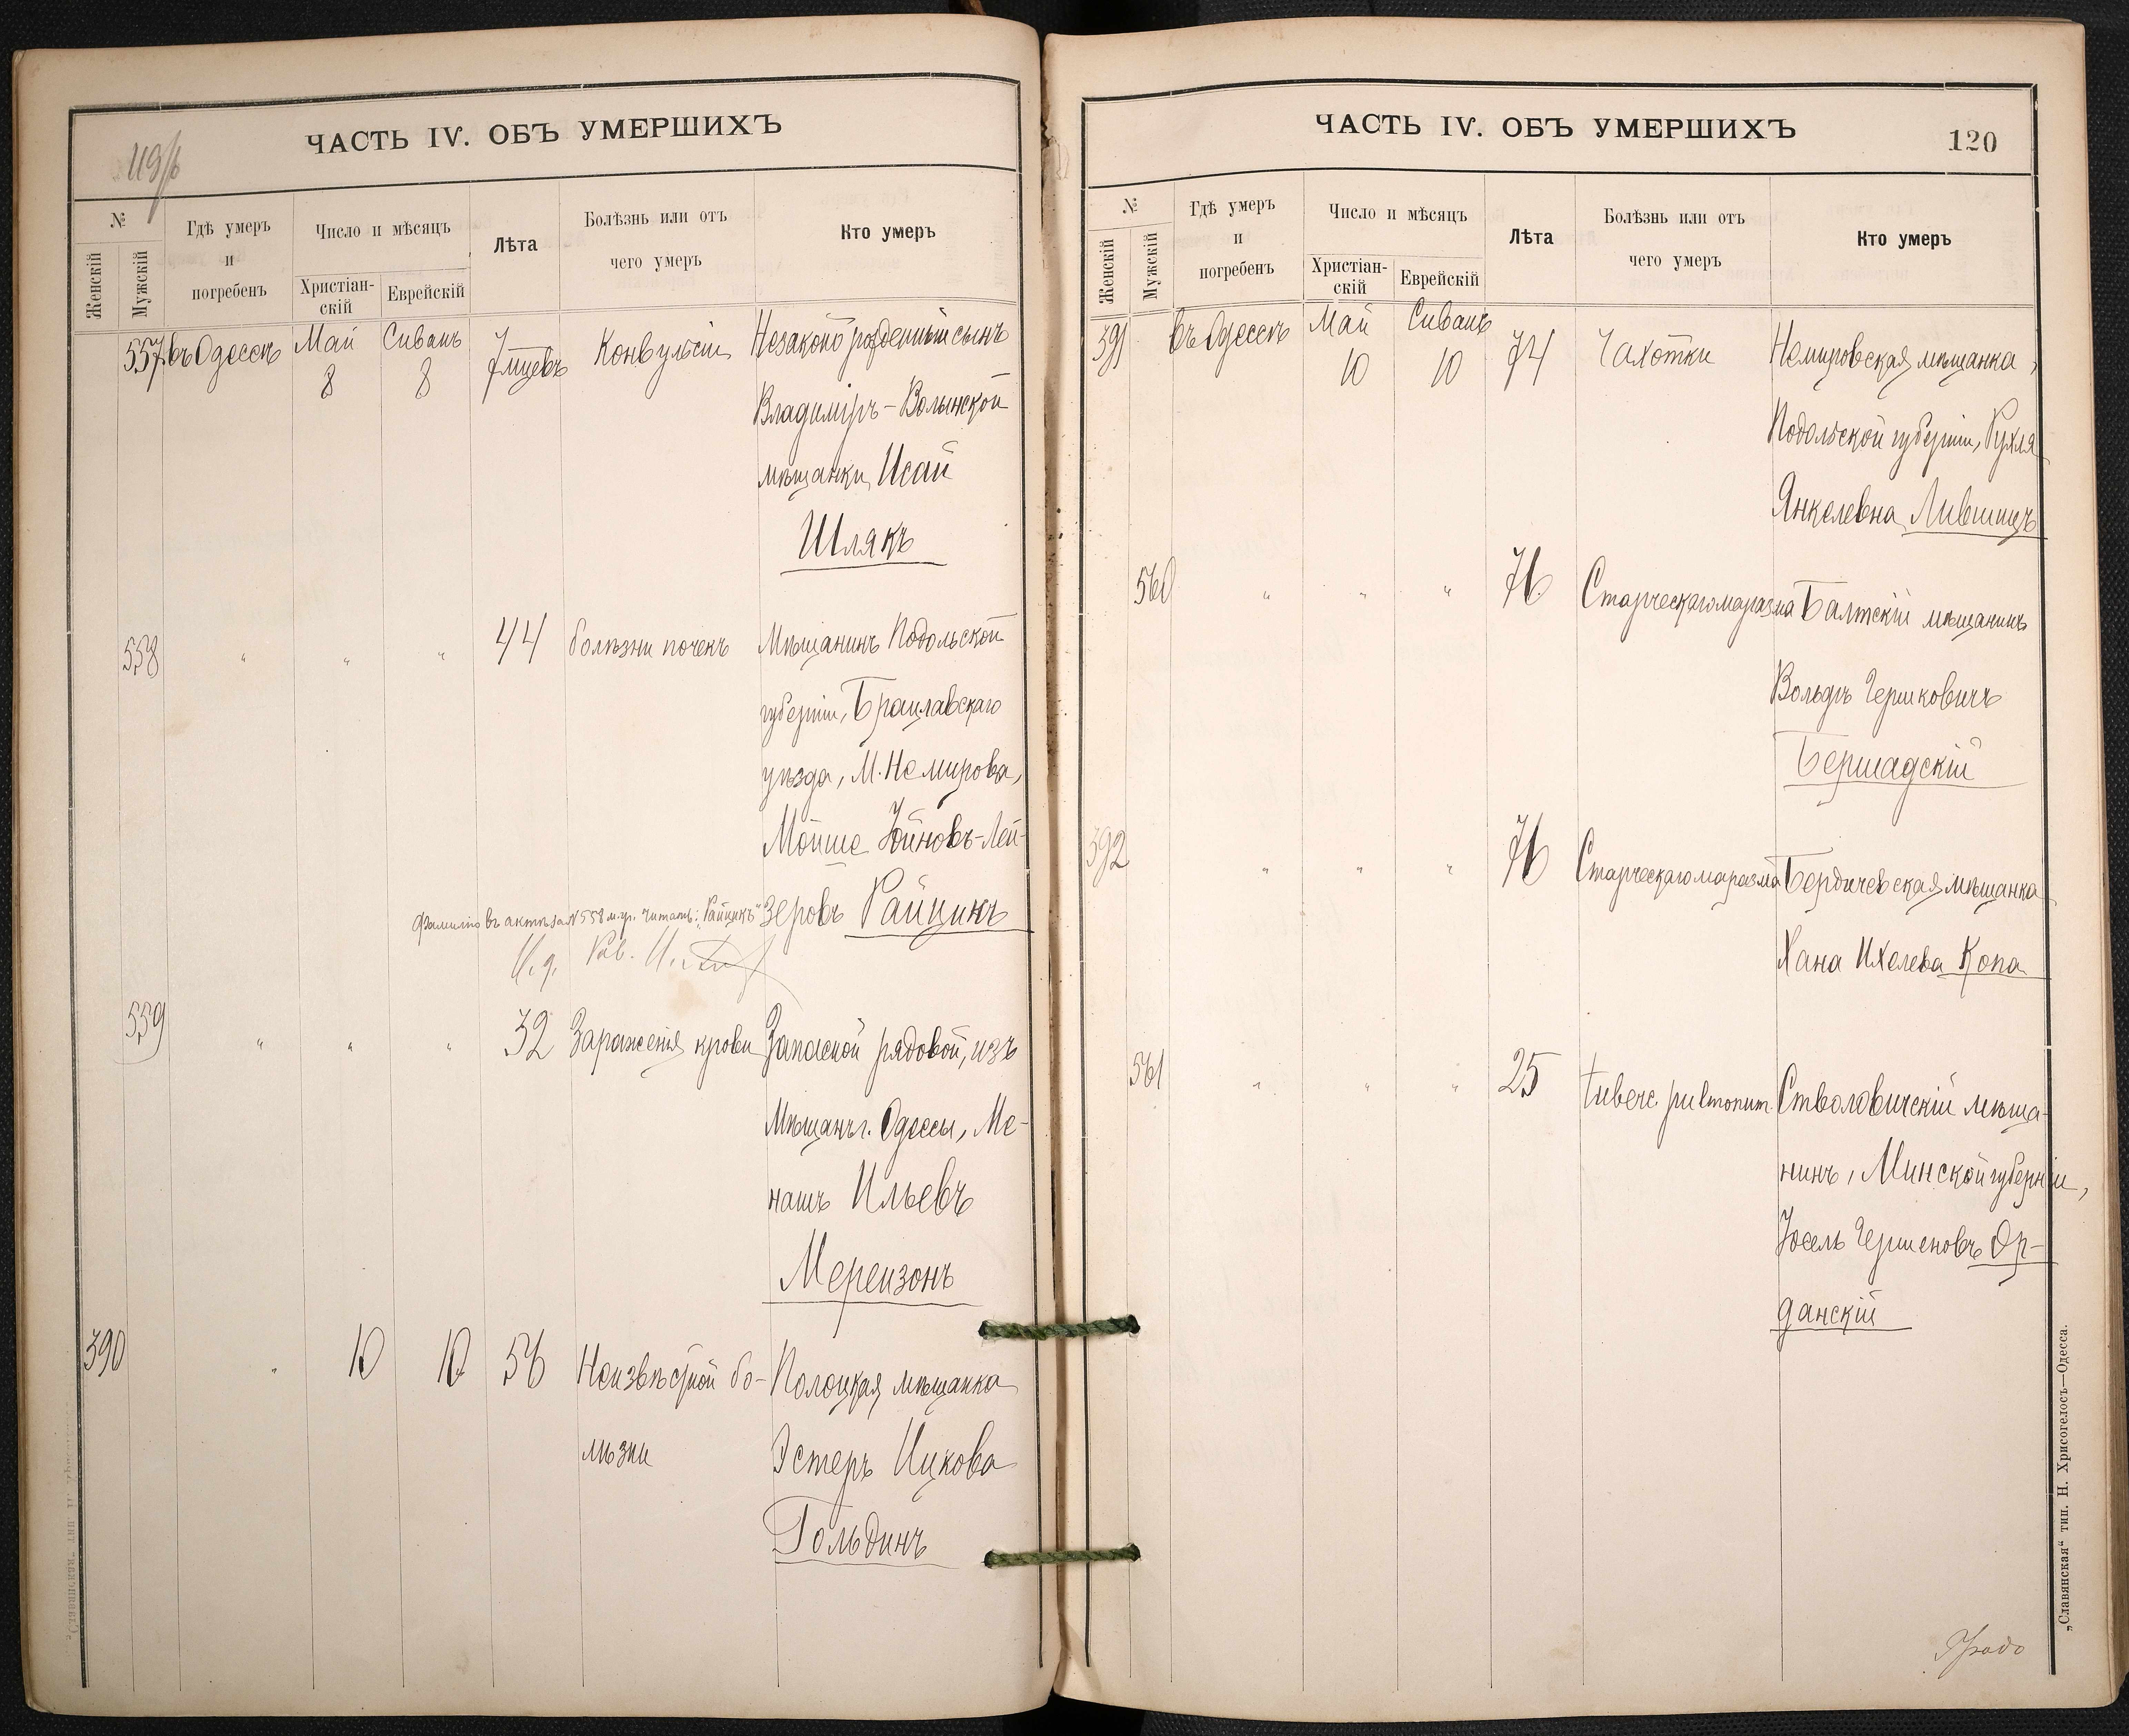 119/б
ЧАСТЬ IV. ОБЪ УМЕРШИХЪ
№
Женскій
Мужскій
Гдѣ умеръ
и
погребенъ
Число и мѣсяцъ
Христіан-
скій
Еврейскій
Лѣта
Болѣзнь или отъ
чего умеръ
Кто умеръ
557 въ Одессѣ Май Сиванъ 7 Конвульсіи Незаконорожденный сынъ
8 8 мцевъ
Владиміръ-Волынской
мѣщанки Исай
Шлякъ
558 " " " 44 болѣзни почекъ Мѣщанинъ Подольской
губерніи, Брацлавскаго
уѣзда, М. Немирова,
Мойше Іойновъ-Лей-
зеровъ Райцинъ
Фамилію въ актѣ за № 558 м. гр. читать: "Райцикъ"
И. д. Рав.
559 " " " 32 Зараженія крови Запасной рядовой, изъ
Мѣщанъ г. Одессы, Ме-
нашъ Ильевъ
Мерензонъ
390 " 10 10 56 Неизвѣстной бо- Полоцкая мѣщанка
лѣзни Эстеръ Ицкова
Гольдинъ
ЧАСТЬ IV. ОБЪ УМЕРШИХЪ
120
№
Женскій
Мужскій
Гдѣ умеръ
и
погребенъ
Число и мѣсяцъ
Христіан-
скій
Еврейскій
Лѣта
Болѣзнь или отъ
чего умеръ
Кто умеръ
391 въ Одессѣ Май Сиванъ 74 Чахотки Немировская мѣщанка,
10 10
Подольской губерніи, Рухля
Янкелевна Лившицъ
560 " " " 76 Старческаго маразма Балтскій мѣщанинъ
Вольфъ Гершковичъ
Бершадскій
392 " " " 76 Старческаго маразма Бердичевская мѣщанка
Хана Ихелева Копа
561 " " " 25 tuberc pulmonum Стволовичскій мѣща-
нинъ, Минской губерніи,
Іосель Гершеновъ Ор-
данскій
„Славянская“ тип. Н. Хрисогелосъ—Одесса.